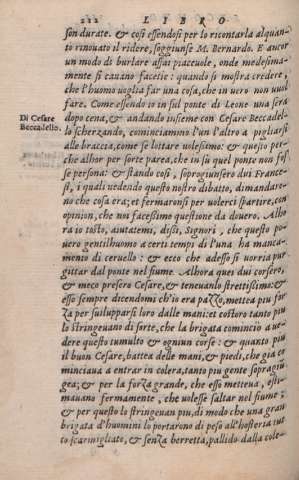 212 LIBRO
son durate. & così essendosi per lo ricontarla alquan-
to rinouato il ridere, soggiunse M. Bernardo. E ancor
un modo di burlare assai piaceuole, onde medesima-
mente si cauano facetie: quando si mostra credere,
che l'huomo uoglia far una cosa, che in uero non uuol
fare. Come essendo io in sul ponte di Leone una sera
dopo cena, & andando insieme con Cesare Beccadel-
Di Cesare
Beccadello.
lo scherzando, cominciammo l'un l'altro a pigliarsi
alle braccia, come se lottare uolessimo: & questo per-
che alhor per sorte parea, che in sù quel ponte non fos-
se persona: & stando così, sopragiunsero dui France-
si, i quali uedendo questo nostro dibatto, dimandare-
no che cosa era; et fermaronsi per uolerci spartire, con
opinion, che noi facessimo questione da douero. Alho
ra io tosto, aiutatemi, dissi, Signori, che questo po-
uero gentilhuomo a certi tempi di luna ha manca-
mento di ceruello: & ecco che adesso si uorria pur
gittar dal ponte nel fiume. Alhora quei dui corsero,
& meco presero Cesare, & teneuanlo strettissimo: &
esso sempre dicendomi ch'io era pazzo, mettea piu for
za per suilupparsi loro dalle mani: et costoro tanto piu
lo stringeuano di sorte, che la brigata cominciò a ue-
dere questo tumulto & ogniun corse: & quanto piu
il buon Cesare, battea delle mani, & piedi, che già co
minciaua a entrar in colera, tanto piu gente sopragiu
gea; & per la forza grande, che esso metteua, esti-
mauano fermamente, che uolesse saltar nel fiume;
& per questo lo stringeuan piu, di modo che una gran
brigata d'huomini lo portarono di peso all'hosteria tut
to scarmigliato, & senza berretta, pallido dalla cole-